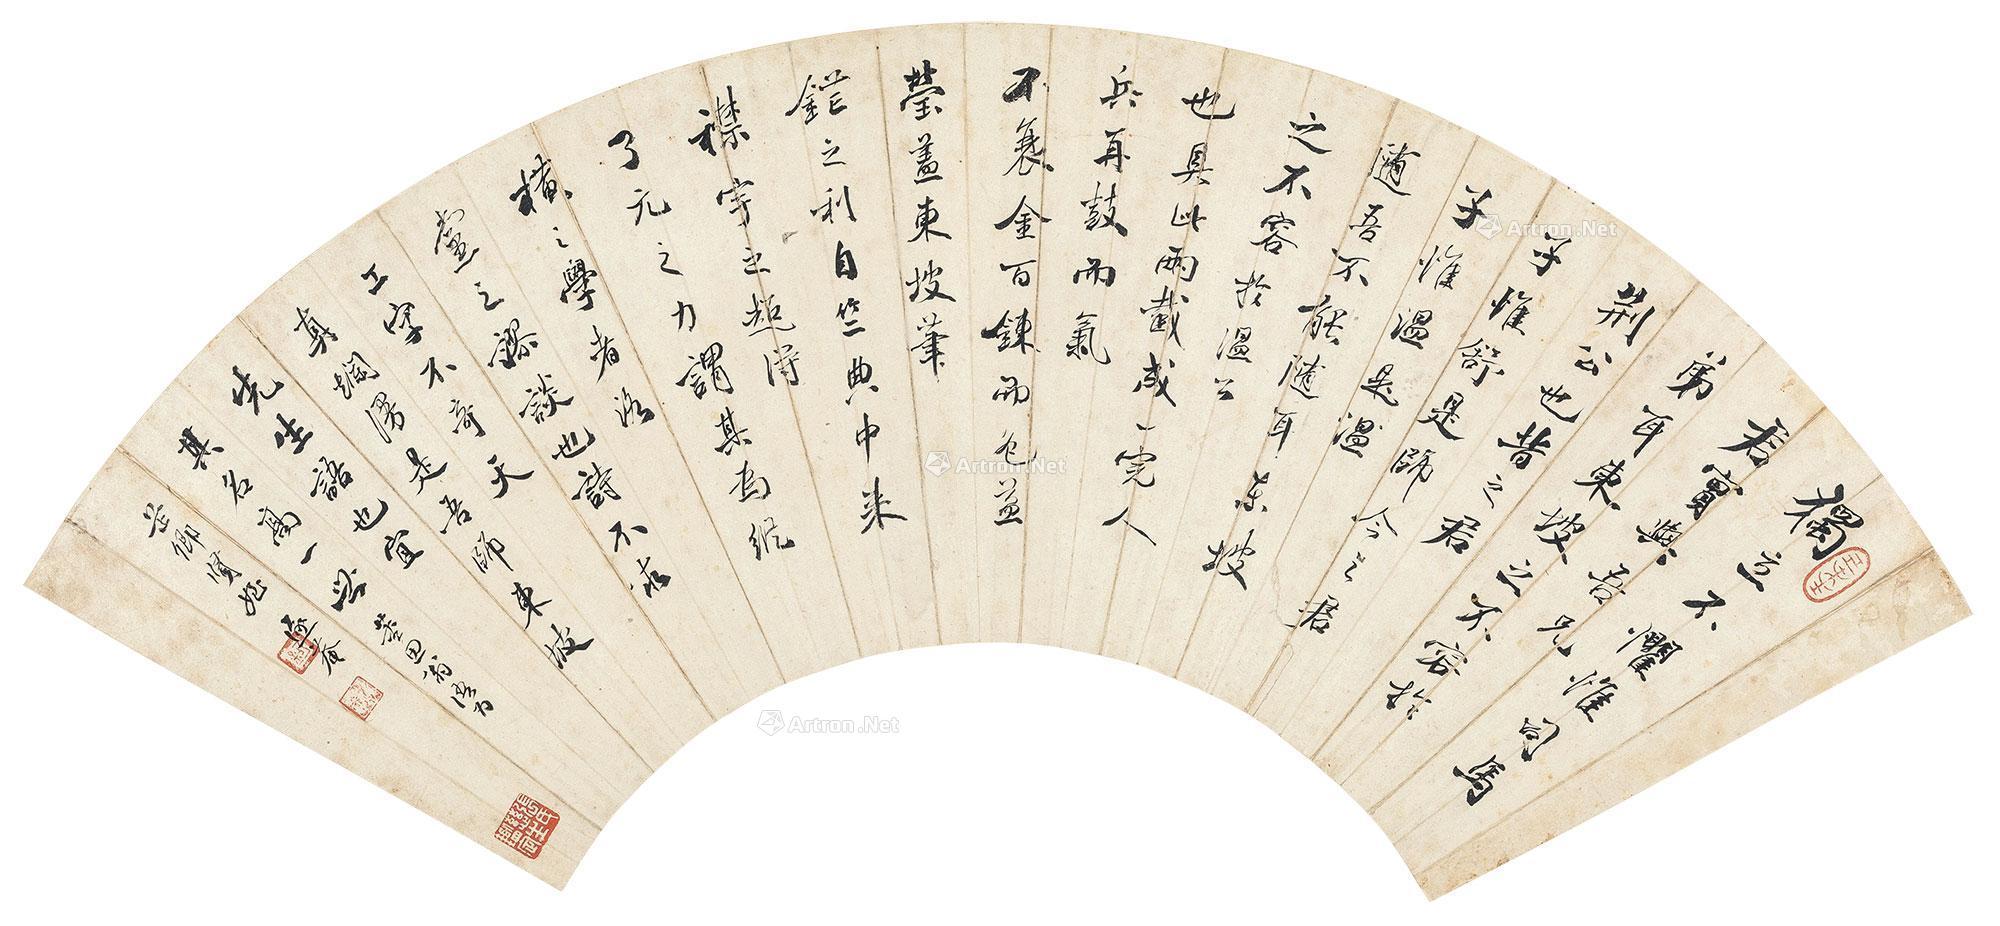 獨立不懼惟司馬
君實與吾兄惟
弟耳東坡之不容於
荆公也昔之君
子惟舒是師今之君
子惟温是温
隨吾不能隨耳東坡
之不容於温公
也具此兩截成一完人
兵再鼓而氣
不衰金百鍊而色益
瑩蓋東坡筆
鋩之利自竺典中来
襟宇之超得
了元之力謂其為縱
橫之學者洛
黨之謬談也詩不求
工字不奇天
真爛漫是吾師東坡
先生語也宜
其名高一世
芷卿賢姪
Artron.Net
Artron.Net
Artron.Net